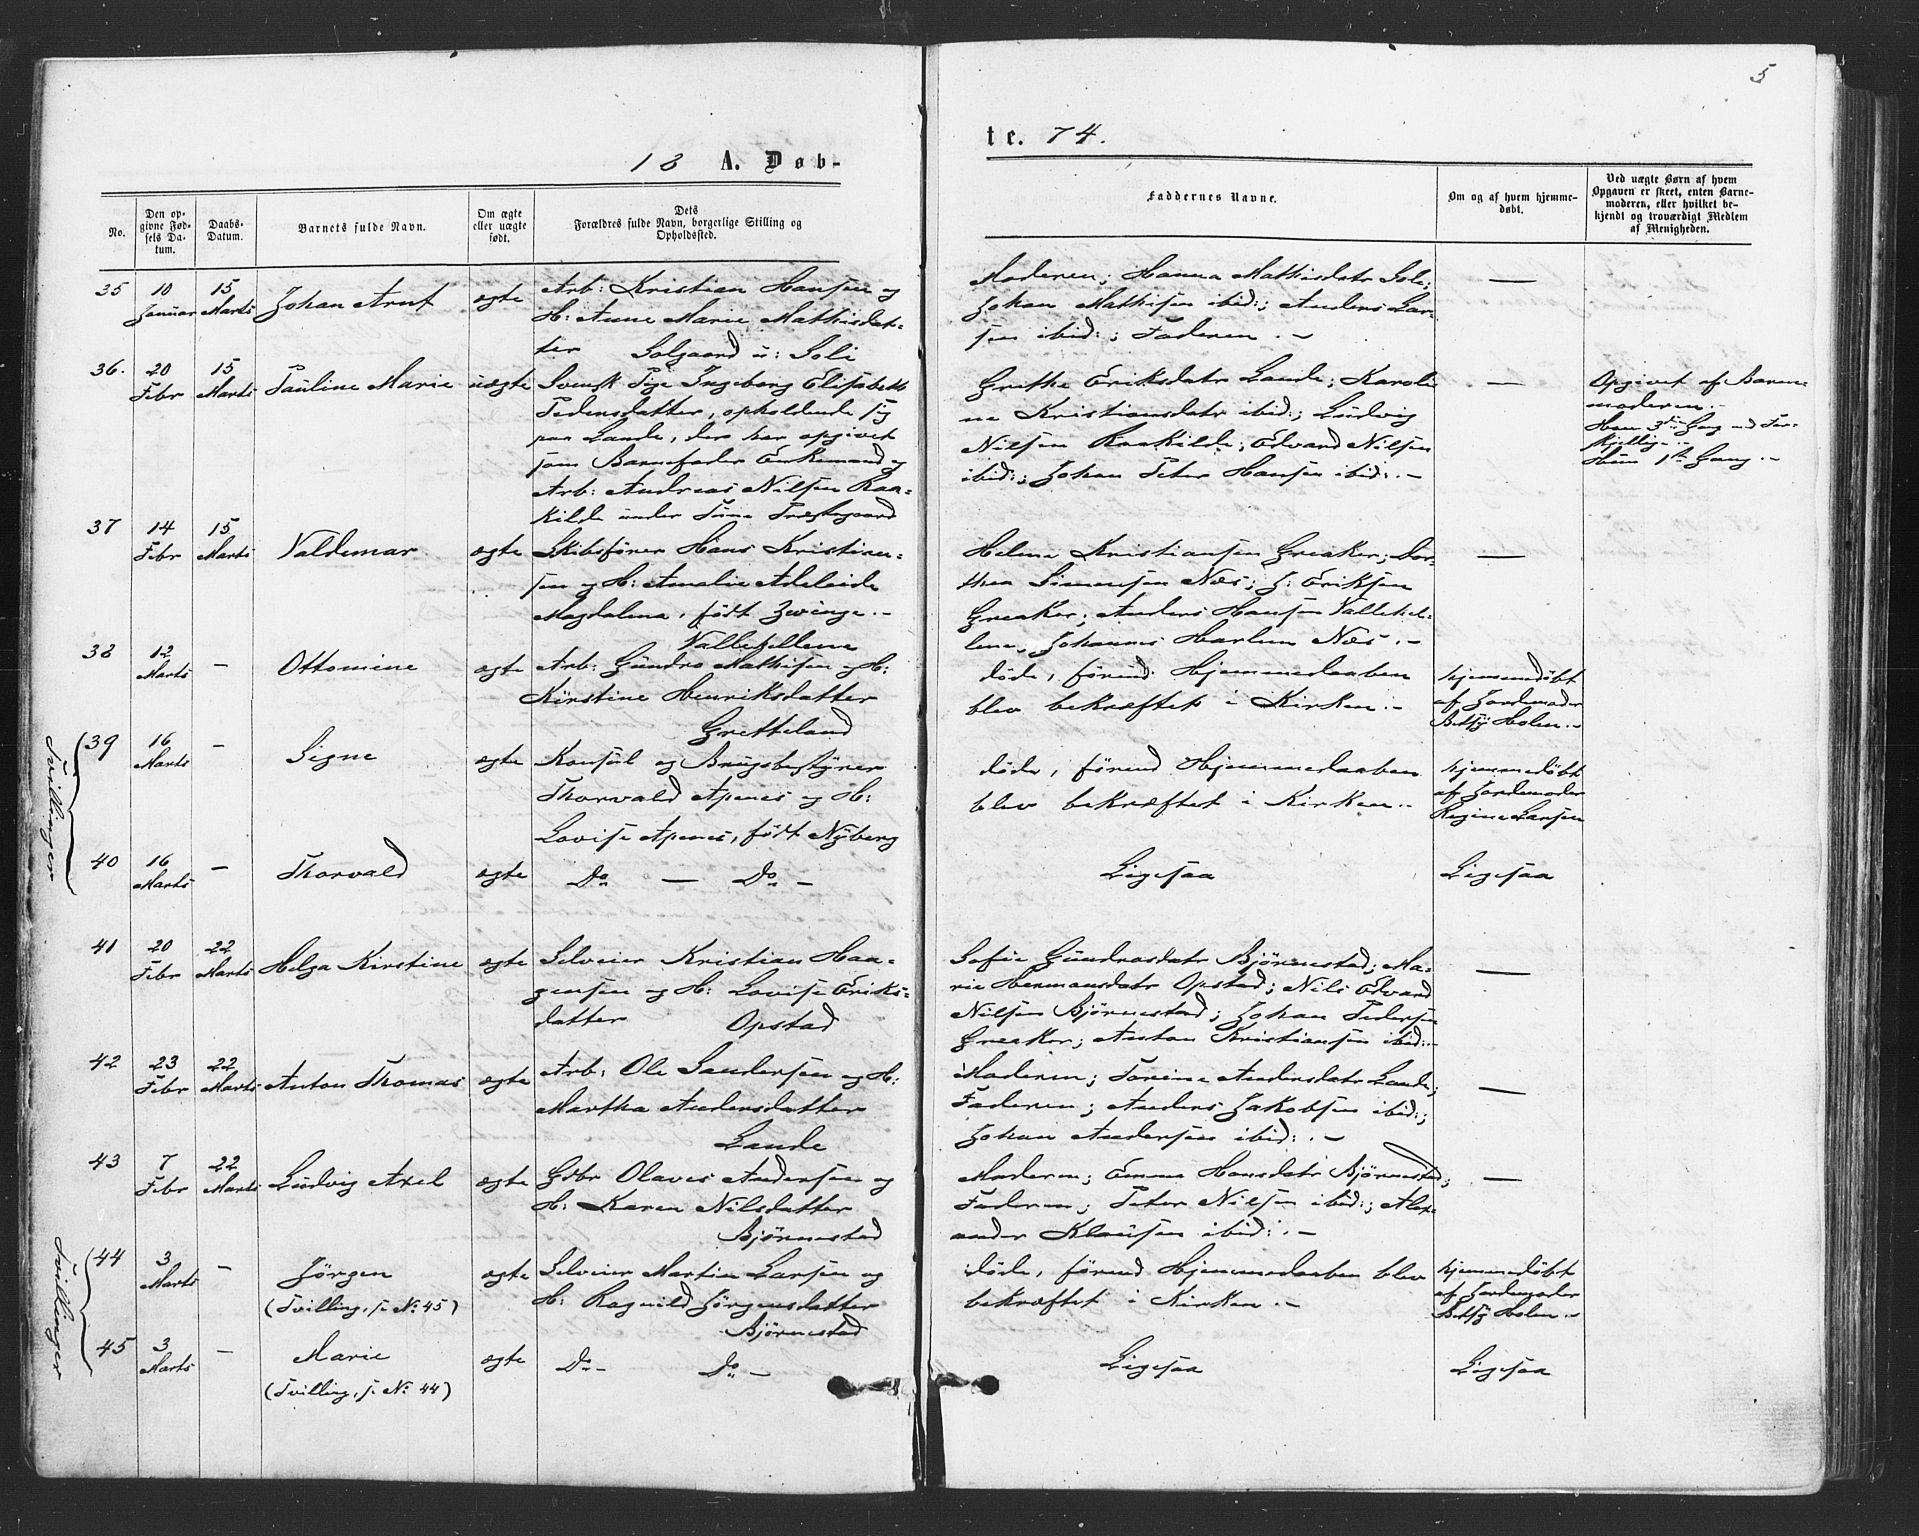 5
18 A. Døb-
te. 74.
No.
Den op-
givne Fød-
sels Da-
tum.
Daabs-
Datum.
Barnets fulde Navn.
Om ægte
eller uægte
født.
Dets
Forældres fulde Navn, borgerlige Stilling og
Opholdssted.
Faddernes Navne.
Om og af hvem hjemme-
døbt.
Ved uægte Børn af hvem
Opgaven er skeet, enten Barne-
moderen, eller hvilket be-
kjendt og troværdigt Medlem
af Menigheden.
35
10
Januar
15
Marts
Johan Arnt
ægte
Arb: Kristian Hansen og
H: Anne Marie Mathisdat-
ter Solgaard u: Soli
Moderen; Hanna Mathisdatr Soli;
Johan Mathisen ibid:; Anders Lar-
sen ibid:; Faderen. –
—
36.
20
Febr
15
Marts
Pauline Marie
uægte
Svensk Pige Ingeborg Elisabeth
Pedersdatter, opholdende sig
paa Lande, der har opgivet
som Barnefader Enkemand og
Arb: Andreas Nilsen Raa-
kilde under Tune Præstegaard
Grethe Eriksdatr Lande; Karoli
ne Kristiansdatr ibid:; Ludvig
Nilsen Raakilde; Edvard Nilsen
ibid:; Johan Peter Hansen ibid:. –
—
Opgivet af Barne-
moderen. –
Han 3die Gang med For-
skjellige. –
Hun 1ste Gang. –
37
14
Febr
15
Marts
Valdemar
ægte
Skibsfører Hans Kristian-
sen og H: Amalie Adelaide
Magdalena, født Zwinge. –
Vallekillene
Helene Kristiansen Greaker; Dor-
thea Simensen Næs; J: Eriksen
Greaker; Anders Hansen Vallekil-
lene, Johannes Harlem Næs. –
—
38
12
Marts
–
Ottomine
ægte
Arb: Gundro Mathisen og H:
Kirstine Henriksdatter
Gretteland
døde, førend Hjemmedaaben
blev bekræftet i Kirken. –
hjemmedøbt
af Jordemoder
Betsy Holen. –
Tvillinger
39
16
Marts
–
Signe
ægte
Konsul og Brugsbestyrer
Thorvald Apenes og H:
Lovise Apenes, født Nyberg
døde, førend Hjemmedaaben
blev bekræftet i Kirken. –
hjemmedøbt
af Jordemoder
Regine Larsen
40
16
Marts
–
Thorvald
ægte
Do — Do –
Ligesaa
Ligesaa
41
20
Febr
22
Marts
Helga Kirstine
ægte
Selveier Kristian Haa-
gensen og H: Lovise Eriks-
datter Opstad
Sofie Gundrosdatr Bjørnestad; Ma-
rie Hermansdatr Opstad; Nils Edvard
Nilsen Bjørnestad; Johan Pedersen
Greaker; Anton Kristiansen ibid:. –
—
42
23
Febr
22
Marts
Anton Thomas
ægte
Arb: Ole Sandersen og H:
Martha Andersdatter
Lande
Moderen; Torine Andersdatr Lande;
Faderen; Anders Jakobsen ibid:;
Johan Andersen ibid:. –
—
43
7
Febr
22
Marts
Ludvig Axel
ægte
Gdbr Olaves Andersen og
H: Karen Nilsdatter
Bjørnestad
Moderen; Emma Hansdatr Bjørnestad;
Faderen; Peter Nilsen ibid:; Alex-
ander Klausen ibid:. –
—
Tvillinger
44
3
Marts
–
Jørgen
(Tvilling, s. No 45)
ægte
Selveier Martin Larsen og
H: Ragnild Jørgensdatter
Bjørnestad
døde, førend Hjemmedaaben blev
bekræftet i Kirken. –
hjemmedøbt
af Jordemoder
Betsy Holen. –
45
3
Marts
–
Marie
(Tvilling, s. No 44)
ægte
Do – Do –
Ligesaa
Ligesaa